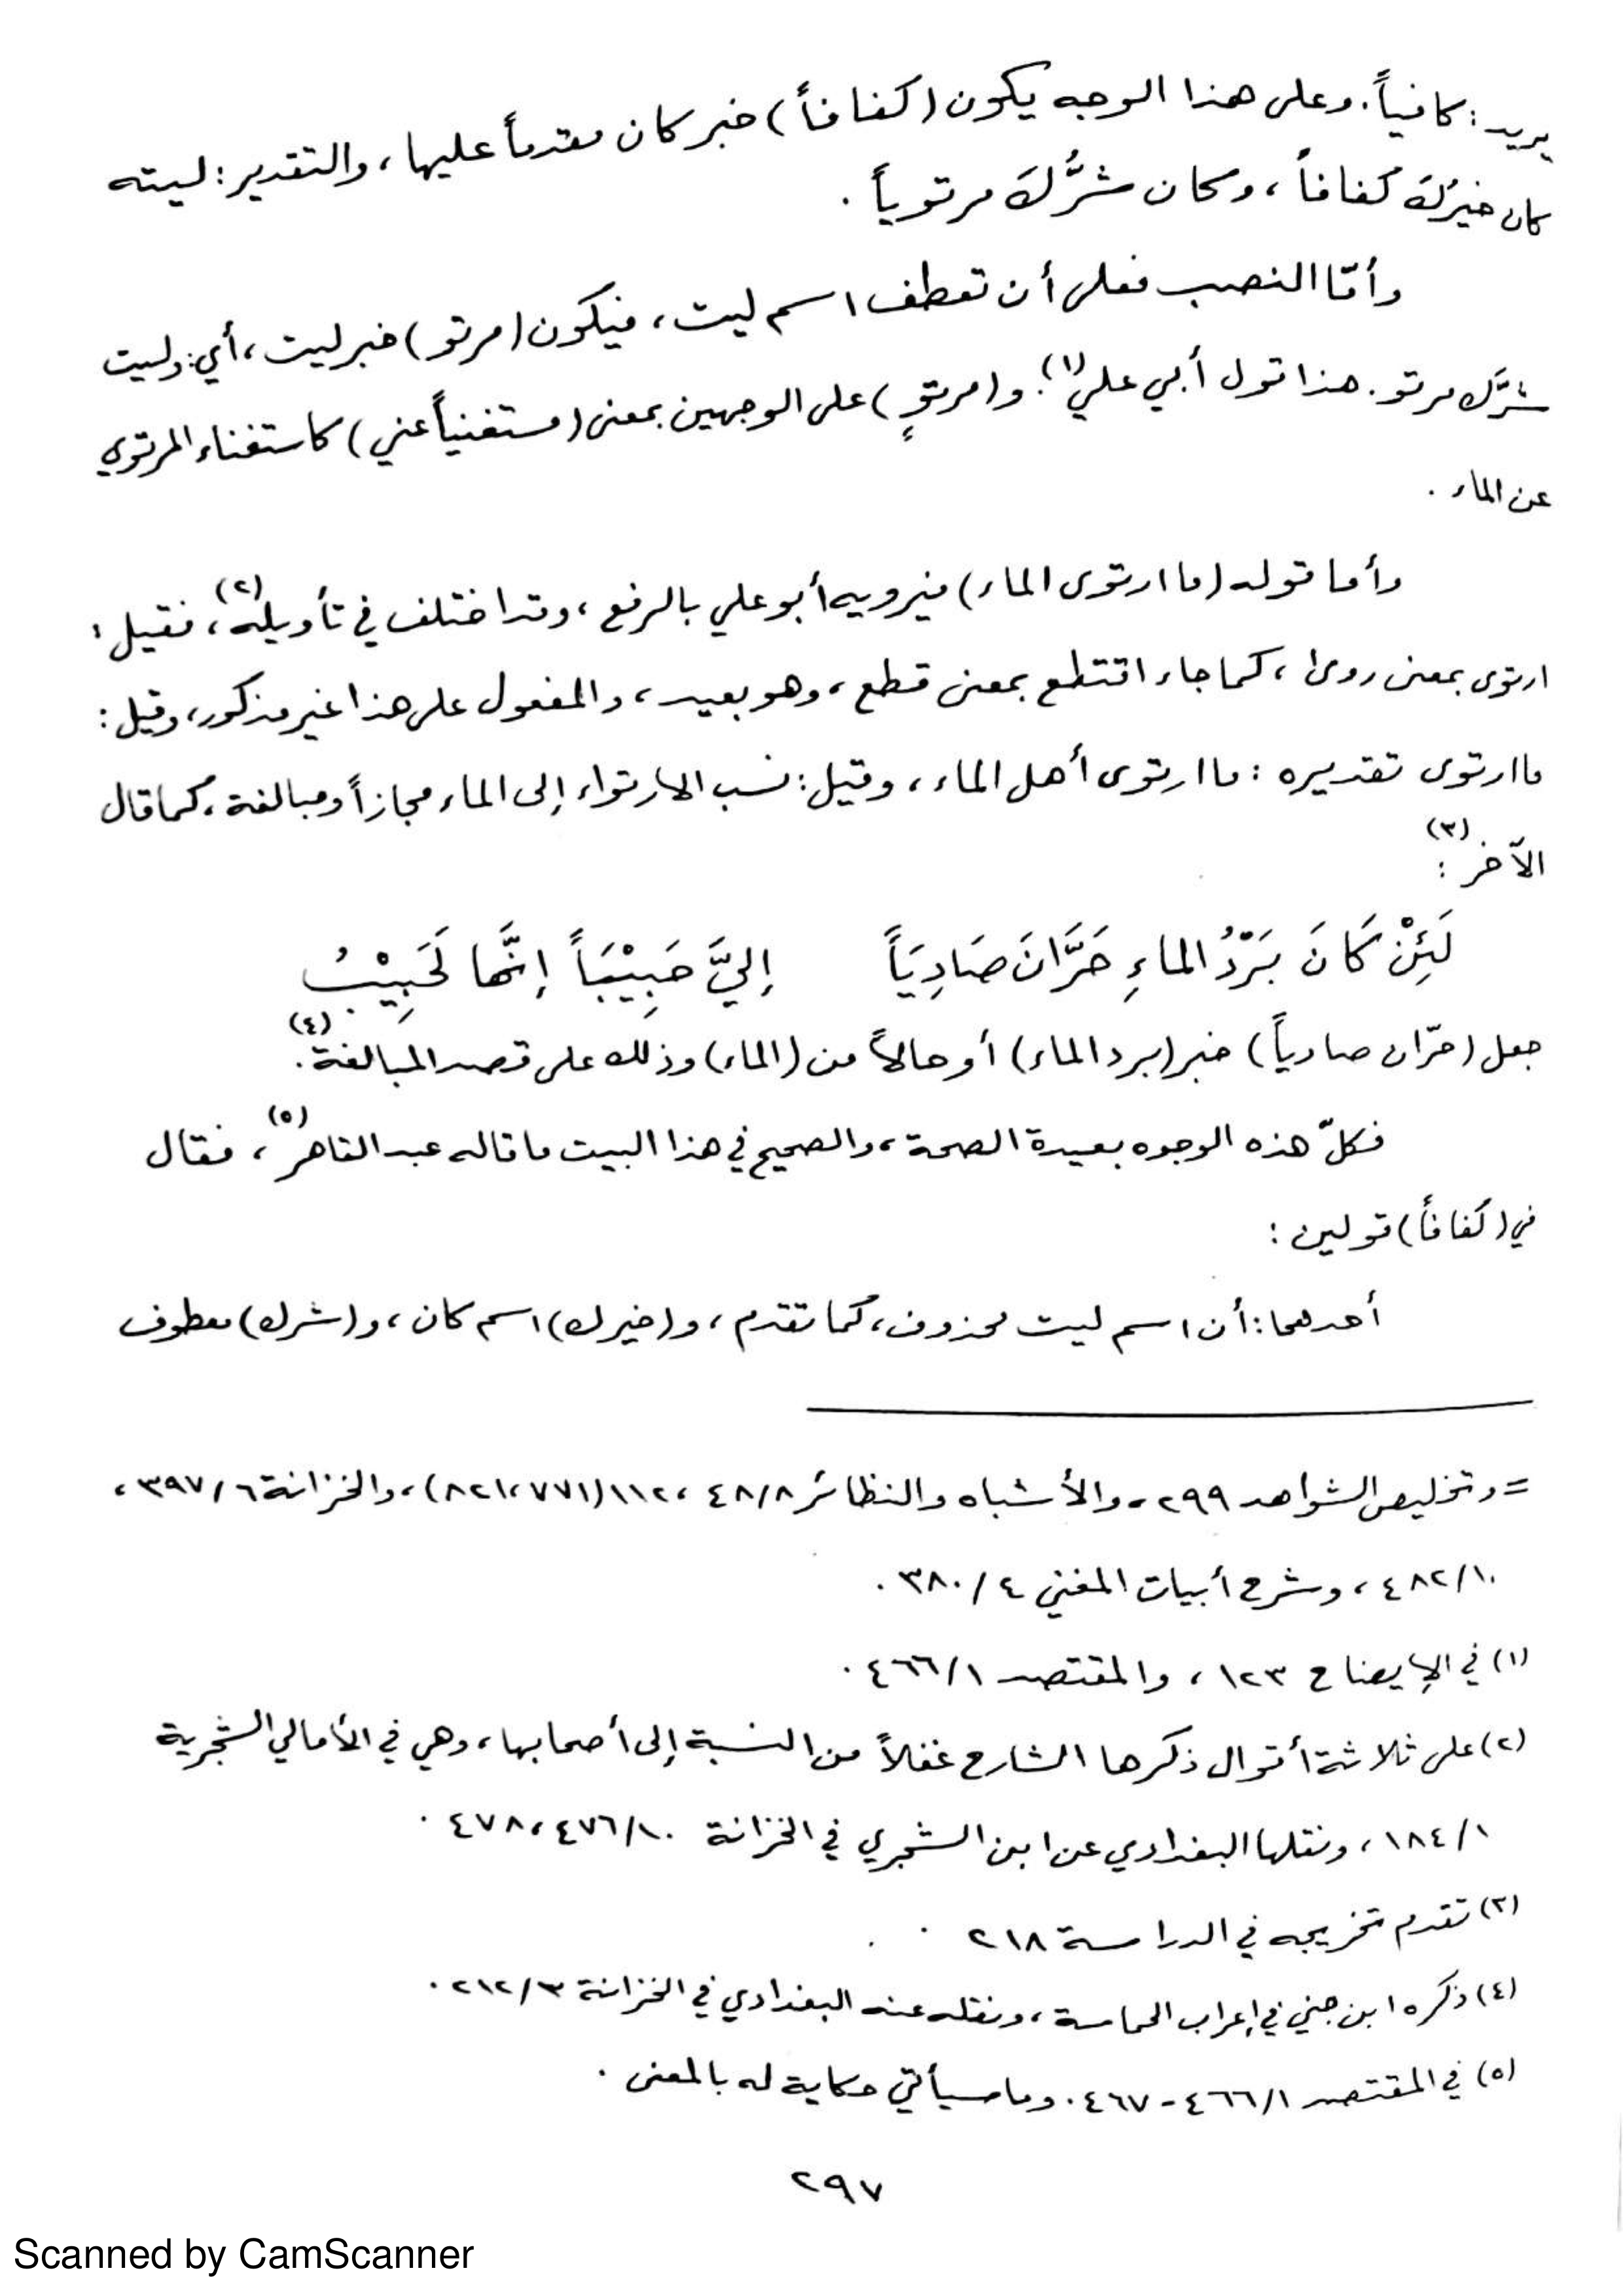 يريد: كافياً. وعلى هذا الوجه يكون (كفافاً) خبر كان مقدماً عليها، والتقدير: ليته
كان خيرُك كفافاً، وكان شرُّك مرتوياً.
وأمّا النصب فعلى أن تعطف اسم ليت، فيكون (مرتو) خبر ليت، أي: وليت
شرَّك مرتو. هذا قول أبي علي(١). و(مرتوٍ) على الوجهين بمعنى (مستغنياً عني) كاستغناء المرتوي
عن الماء.
وأما قوله (ما ارتوى الماء) فيرويه أبو علي بالرفع، وقد اختلف في تأويله(٢)، فقيل:
ارتوى بمعنى روى، كما جاء اقتطع بمعنى قطع، وهو بعيد، والمفعول على هذا غير مذكور، وقيل:
ما ارتوى تقديره: ما ارتوى أهل الماء، وقيل: نسب الارتواء إلى الماء مجازاً ومبالغة، كما قال
الآخر(٣):
لَئِنْ كَانَ بَرْدُ الماءِ حَرَّانَ صَادِيَاً إليَّ حَبِيْبَاً إنَّها لَحَبِيْبُ
جعل (حرّان صادياً) خبر (برد الماء) أو حالاً من (الماء) وذلك على قصد المبالغة(٤).
فكلّ هذه الوجوه بعيدة الصحة، والصحيح في هذا البيت ما قاله عبد القاهر(٥)، فقال
في (كفافاً) قولين:
أحدهما: أن اسم ليت محذوف، كما تقدم، و(خيرك) اسم كان، و(شرك) معطوف
= وتخليص الشواهد ٢٩٩، والأشباه والنظائر ٤٨/٨، ١١٢ (٧٧١، ٨٢١)، والخزانة ٣٩٧/٦،
٤٨٢/١٠، وشرح أبيات المغني ٣٨٠/٤.
(١) في الإيضاح ١٢٣، والمقتصد ٤٦٦/١.
(٢) على ثلاثة أقوال ذكرها الشارح غفلاً من النسبة إلى أصحابها، وهي في الأمالي الشجرية
١٨٤/١، ونقلها البغدادي عن ابن الشجري في الخزانة ٤٧٦/١٠، ٤٧٨.
(٣) تقدم تخريجه في الدراسة ٢١٨
(٤) ذكره ابن جني في إعراب الحماسة، ونقله عنه البغدادي في الخزانة ٢١٢/٣.
(٥) في المقتصد ٤٦٦/١-٤٦٧. وما سيأتي حكاية له بالمعنى.
٢٩٧
Scanned by CamScanner